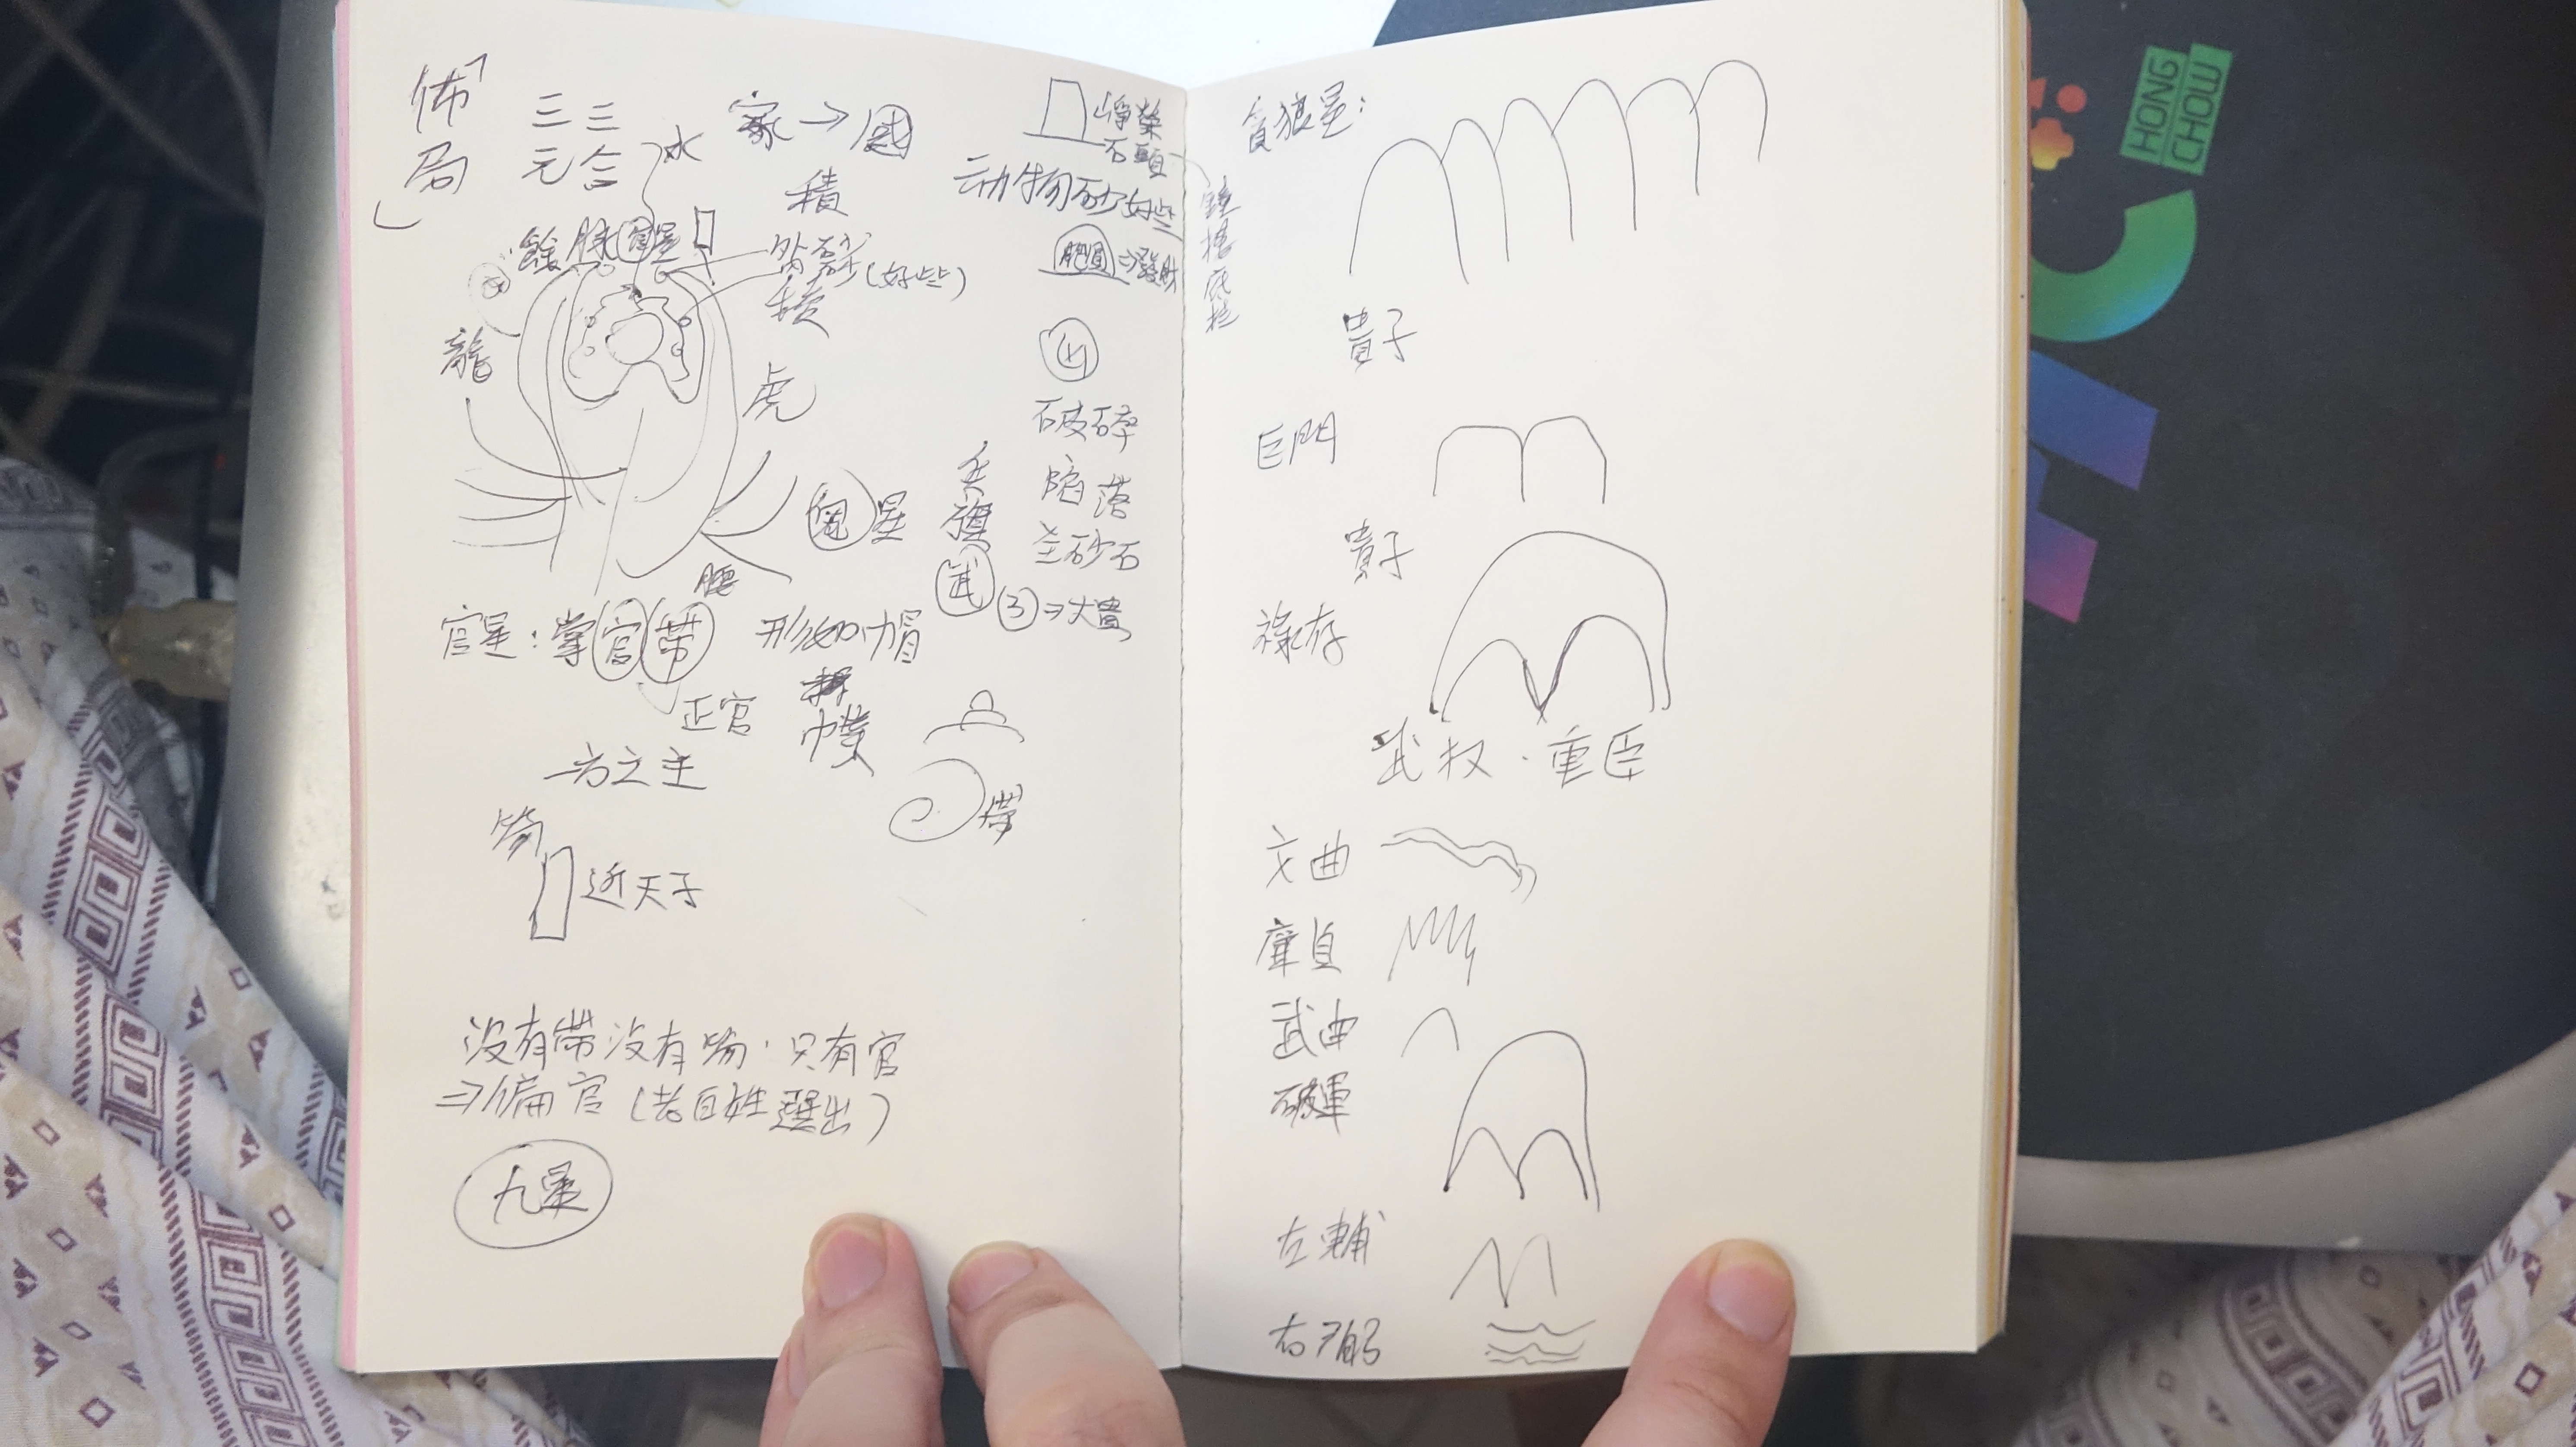 「佈局」
三元
三合
水
家→國
積
餘脉官星
外砂(好些)
龍
虎
鬼星
腰
官星:掌官帶
正官
一方之主
形如帽
帶
笏
近天子
没有帶没有笏·只有官
⇒偏官(老百姓選出)
九星
崢嶸
石頭
动物砂好些
肥圓⇒發財
凶
破碎
陷落
兵旗
砂石
武
③⇒大貴
貪狼星:
貴子
巨門
貴子
祿存
武权·重臣
文曲
廉貞
武曲
破軍
左輔
右弼
HONG
CHOW
HC